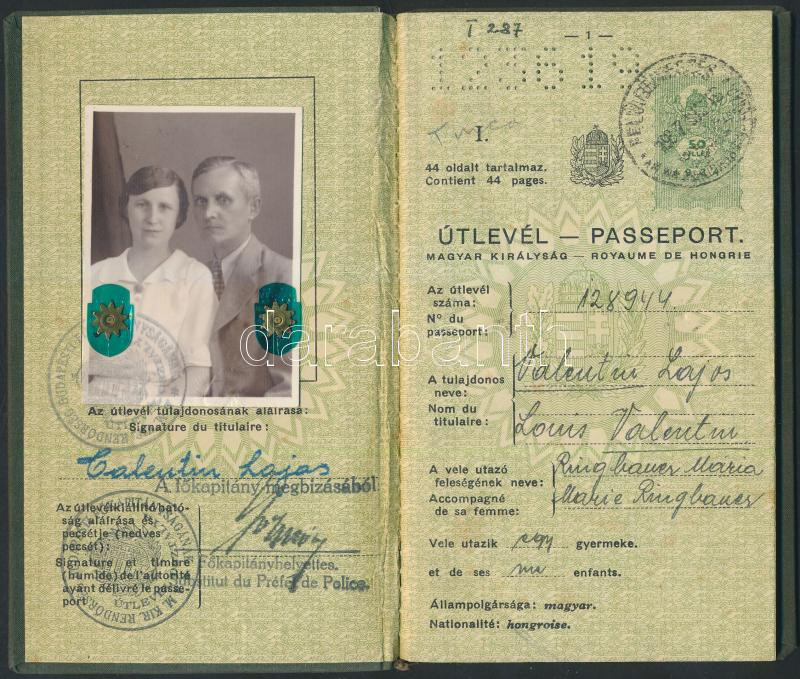 Az útlevél tulajdonosának aláírása:
Signature du titulaire:
Valentin Lajos
A főkapitány megbízásából
Az útlevélkiállító ható-
ság aláírása és
pecsétje (nedves
pecsét):
Signature et timbre
(humide) de l'autorité
ayant délivré le passe-
port
Főkapitányhelyettes.
Substitut du Préfet de Police.
I 287
— 1 —
I.
44 oldalt tartalmaz.
Contient 44 pages.
50
FILLÉR
ÚTLEVÉL — PASSEPORT.
MAGYAR KIRÁLYSÁG — ROYAUME DE HONGRIE
Az útlevél
száma:
N° du
passeport:
128944
A tulajdonos
neve:
Nom du
titulaire:
Valentin Lajos
Louis Valentin
A vele utazó
feleségének neve:
Accompagné
de sa femme:
Ringbauer Mária
Marie Ringbauer
Vele utazik egy gyermeke.
et de ses un enfants.
Állampolgársága: magyar.
Nationalité: hongroise.
darabanth